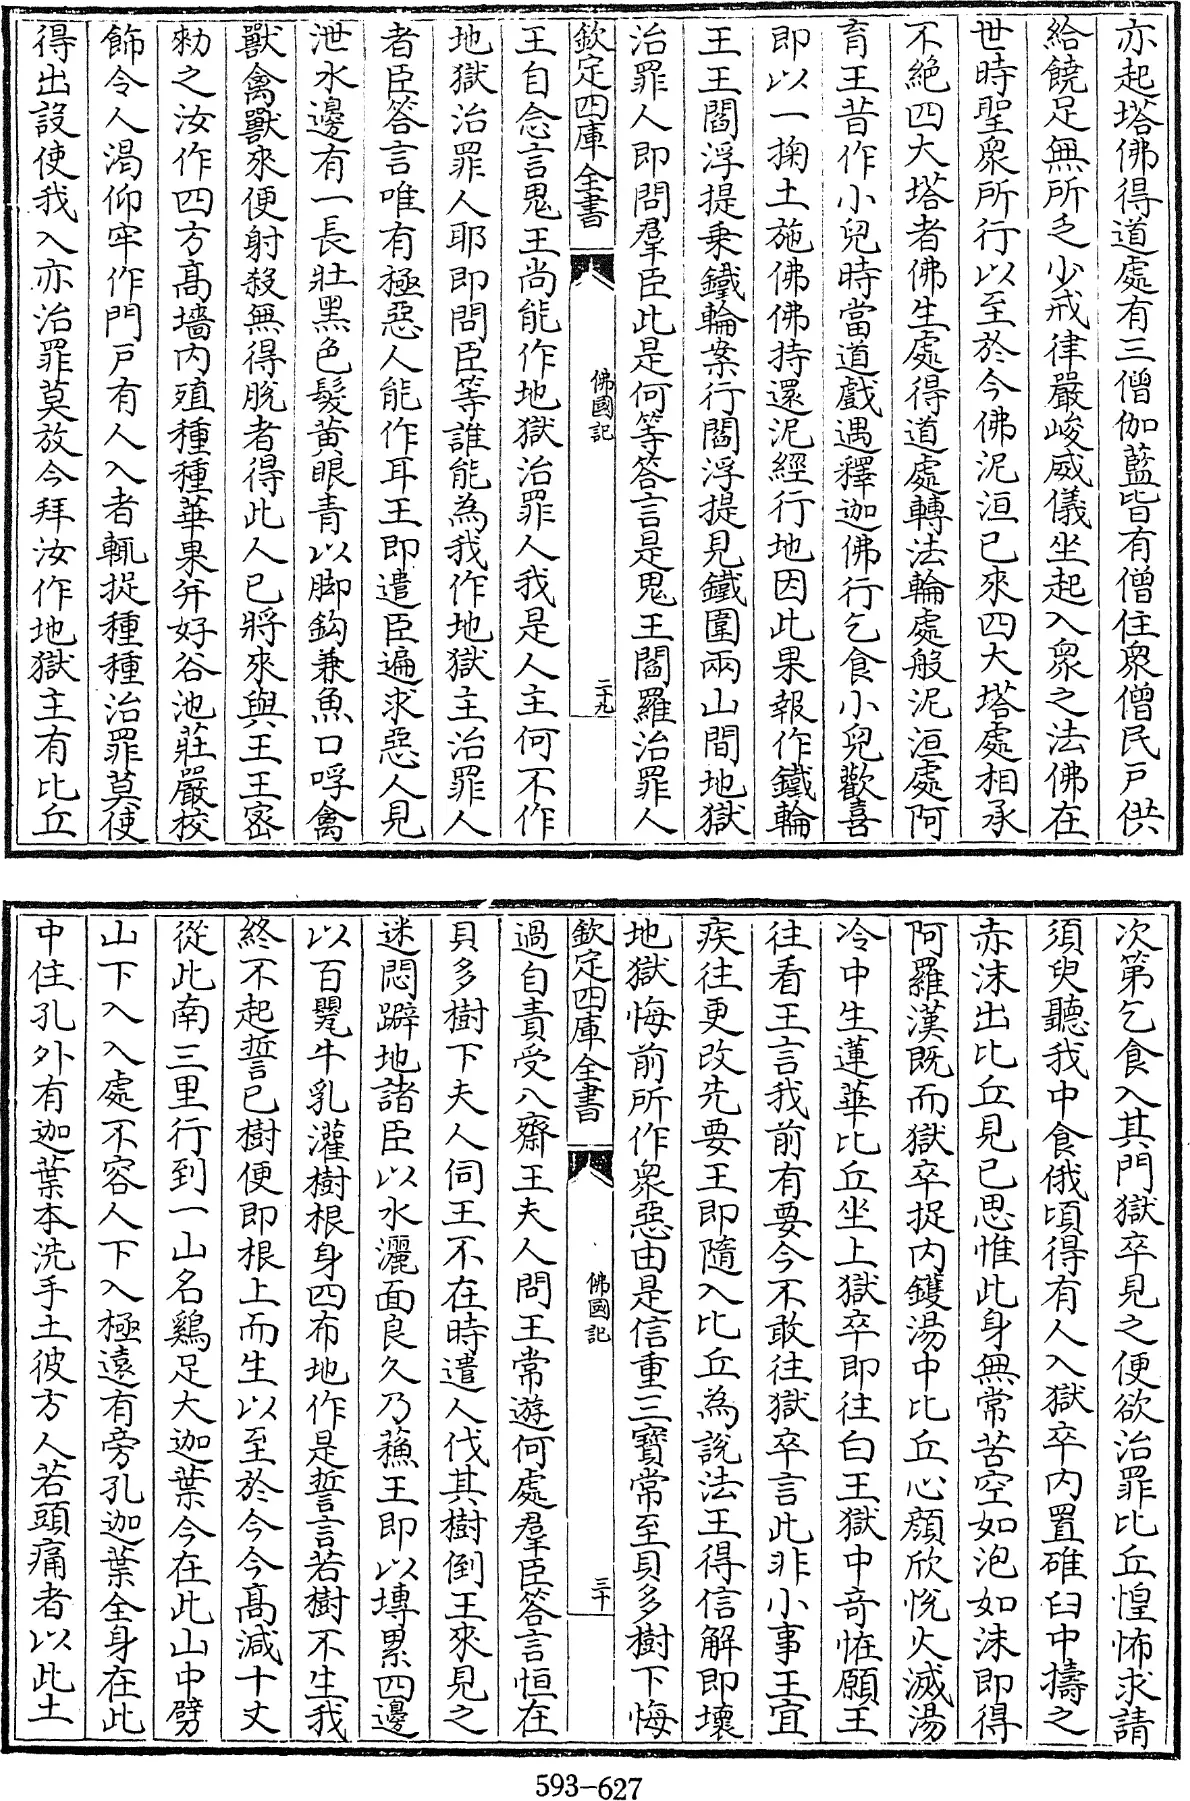 亦起塔佛得道處有三僧伽藍皆有僧住衆僧民戸供
給饒足無所乏少戒律嚴峻威儀坐起入衆之法佛在
世時聖衆所行以至於今佛泥洹已來四大塔處相承
不絶四大塔者佛生處得道處轉法輪處般泥洹處阿
育王昔作小兒時當道戲遇釋迦佛行乞食小兒歡喜
即以一掬土施佛佛持還泥經行地因此果報作鐵輪
王王閻浮提乗鐵輪案行閻浮提見鐵圍兩山間地獄
治罪人即問羣臣此是何等答言是鬼王閻羅治罪人
欽定四庫全書 佛國記 二十九
王自念言鬼王尚能作地獄治罪人我是人主何不作
地獄治罪人耶即問臣等誰能為我作地獄主治罪人
者臣答言唯有極惡人能作耳王即遣臣遍求惡人見
泄水邊有一長壯黑色髮黄眼青以脚鈎兼魚口呼禽
獸禽獸來便射殺無得脫者得此人已將來與王王密
勅之汝作四方髙墻内殖種種華果并好谷池莊嚴校
飾令人渴仰牢作門戸有人入者輒捉種種治罪莫使
得出設使我入亦治罪莫放今拜汝作地獄主有比丘
次第乞食入其門獄卒見之便欲治罪比丘惶怖求請
須臾聽我中食俄頃得有人入獄卒内置碓臼中擣之
赤沫出比丘見已思惟此身無常苦空如泡如沫即得
阿羅漢既而獄卒捉内鑊湯中比丘心顔欣悦火滅湯
冷中生蓮華比丘坐上獄卒即往白王獄中竒怪願王
往看王言我前有要今不敢往獄卒言此非小事王宜
疾往更改先要王即隨入比丘為説法王得信解即壞
地獄悔前所作衆惡由是信重三寶常至貝多樹下悔
欽定四庫全書 佛國記 三十
過自責受八齋王夫人問王常遊何處羣臣答言恒在
貝多樹下夫人伺王不在時遣人伐其樹倒王來見之
迷悶躃地諸臣以水灑面良久乃蘓王即以塼累四邊
以百甖牛乳灌樹根身四布地作是誓言若樹不生我
終不起誓已樹便即根上而生以至於今今髙減十丈
從此南三里行到一山名鷄足大迦葉今在此山中劈
山下入入處不容人下入極遠有旁孔迦葉全身在此
中住孔外有迦葉本洗手土彼方人若頭痛者以此土
593-627